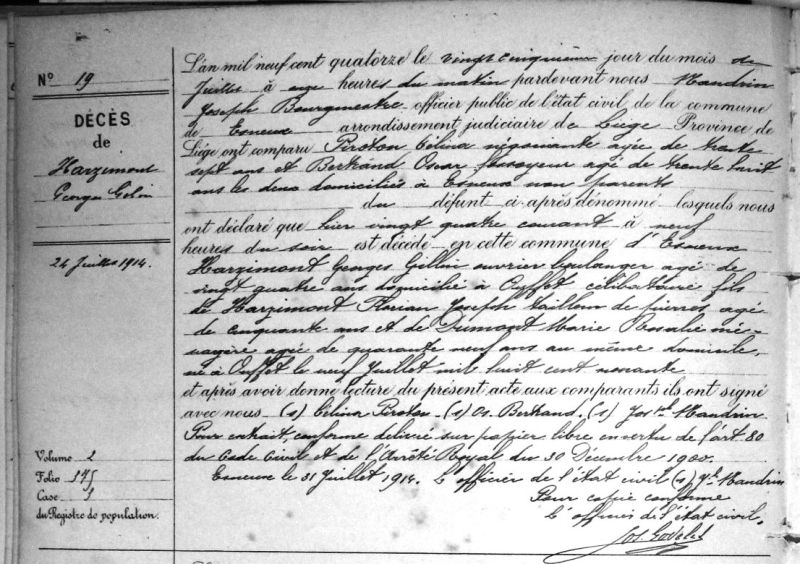 N° 19
DÉCÈS
de
Harzimont
Georges Gelin
24 Juillet 1914.
Volume 2
Folio 175
Case 1
du Registre de population.
L'an mil neuf cent quatorze le vingt cinquième jour du mois de
Juillet à onze heures du matin pardevant nous Mandrin
Joseph Bourgmestre officier public de l'état civil de la commune
de Esneux arrondissement judiciaire de Liège Province de
Liége ont comparu Piroton Célina négociante agée de trente
sept ans et Bertrand Oscar fossoyeur agé de trente huit
ans les deux domiciliés à Esneux non parents
du défunt ci-après dénommé lesquels nous
ont déclaré que hier vingt quatre courant à neuf
heures du soir est décédé en cette commune d'Esneux
Harzimont Georges Gillin ouvrier boulanger agé de
vingt quatre ans domicilié à Ouffet célibataire fils
de Harzimont Florian Joseph tailleur de pierres agé
de cinquante ans et de Dumont Marie Rosalie mé-
nagère agée de quarante neuf ans au même domicile,
né à Ouffet le neuf Juillet mil huit cent nonante
et après avoir donné lecture du présent acte aux comparants ils ont signé
avec nous (s) Célina Piroton. (s) Os. Bertrand. (s) Jos. Mandrin
Pour extrait conforme délivré sur papier libre en vertu de l'art. 80
du Code Civil et de l'Arrêté Royal du 30 Décembre 1900.
Esneux le 31 Juillet 1914. L'officier de l'état civil (s) Mandrin
Pour copie conforme
L'officier de l'état civil,
Jos.